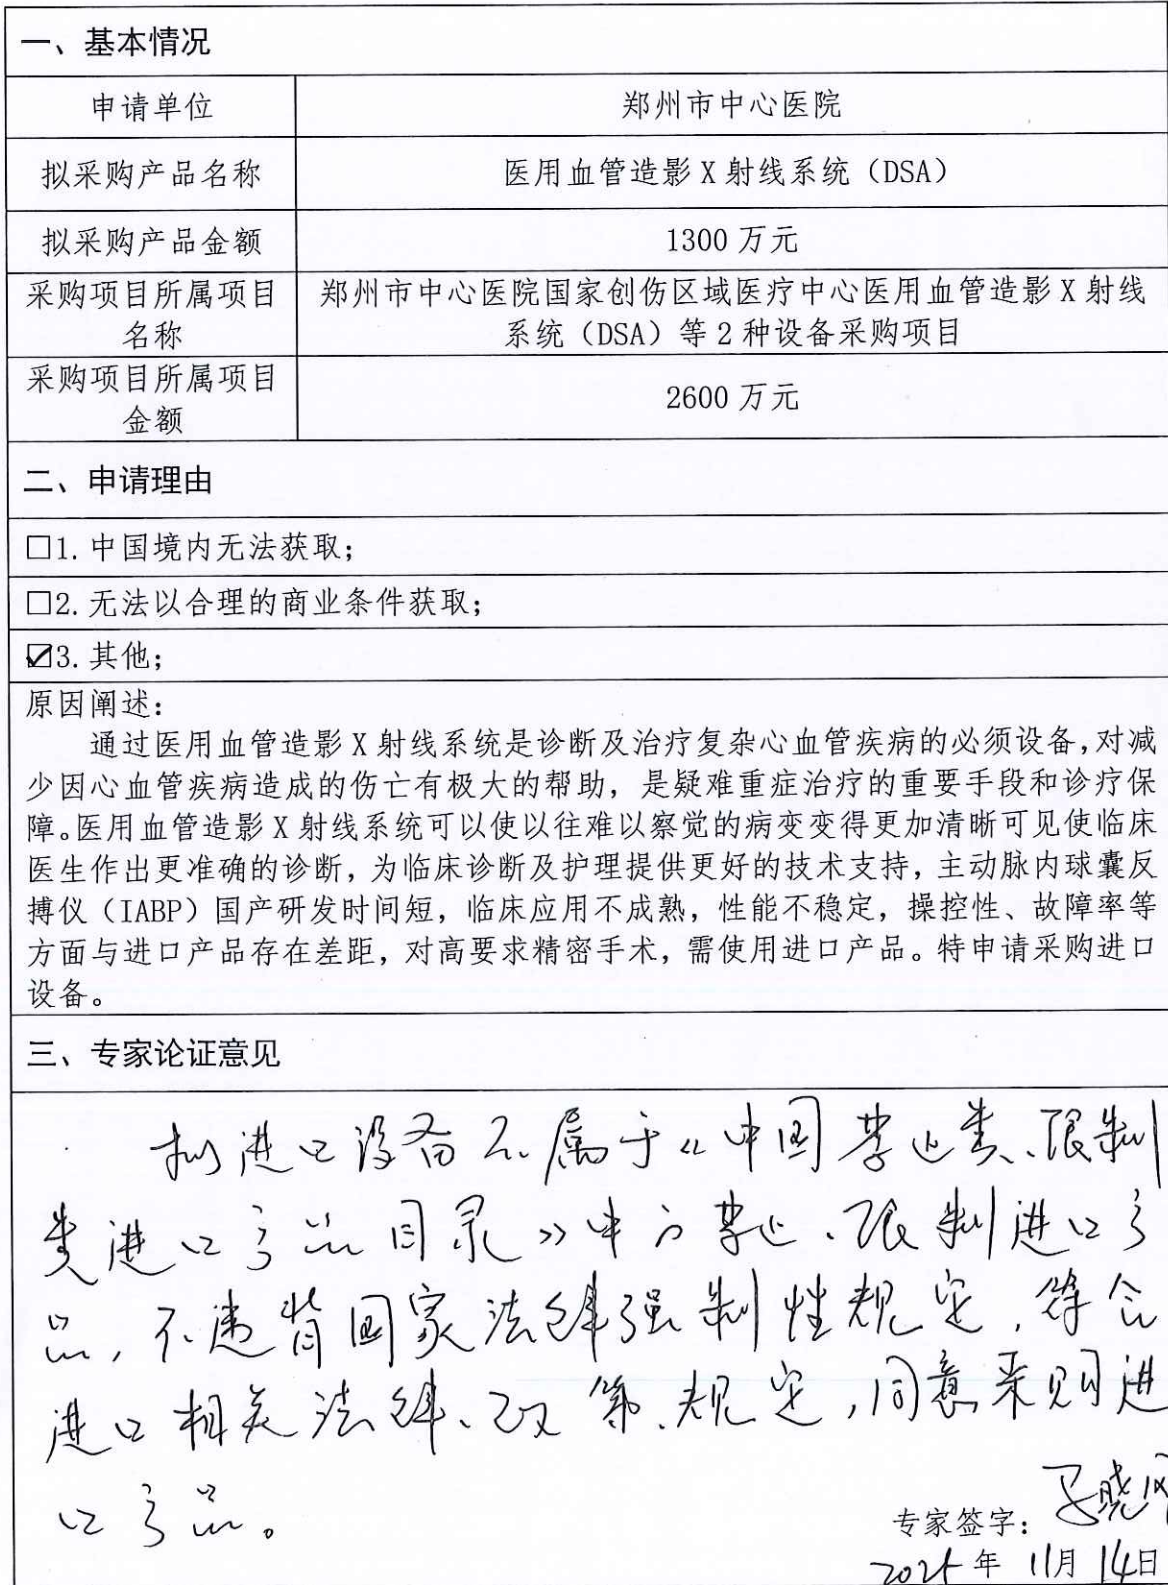 一、基本情况
申请单位
郑州市中心医院
拟采购产品名称
医用血管造影X射线系统（DSA）
拟采购产品金额
1300万元
采购项目所属项目
名称
郑州市中心医院国家创伤区域医疗中心医用血管造影X射线
系统（DSA）等2种设备采购项目
采购项目所属项目
金额
2600万元
二、申请理由
□1.中国境内无法获取；
□2.无法以合理的商业条件获取；
☑3.其他；
原因阐述：
通过医用血管造影X射线系统是诊断及治疗复杂心血管疾病的必须设备，对减
少因心血管疾病造成的伤亡有极大的帮助，是疑难重症治疗的重要手段和诊疗保
障。医用血管造影X射线系统可以使以往难以察觉的病变变得更加清晰可见使临床
医生作出更准确的诊断，为临床诊断及护理提供更好的技术支持，主动脉内球囊反
搏仪（IABP）国产研发时间短，临床应用不成熟，性能不稳定，操控性、故障率等
方面与进口产品存在差距，对高要求精密手术，需使用进口产品。特申请采购进口
设备。
三、专家论证意见
拟进口设备不属于《中国禁止类、限制
类进口产品目录》中的禁止、限制进口产
品，不违背国家法律强制性规定，符合
进口相关法律、政策、规定，同意采购进
口产品。
专家签字：
2025年11月14日